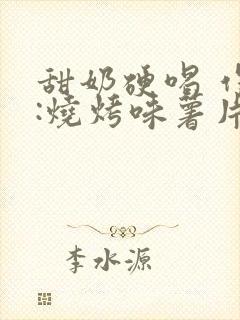 甜奶硬唱
:燒烤味薯片
李水源